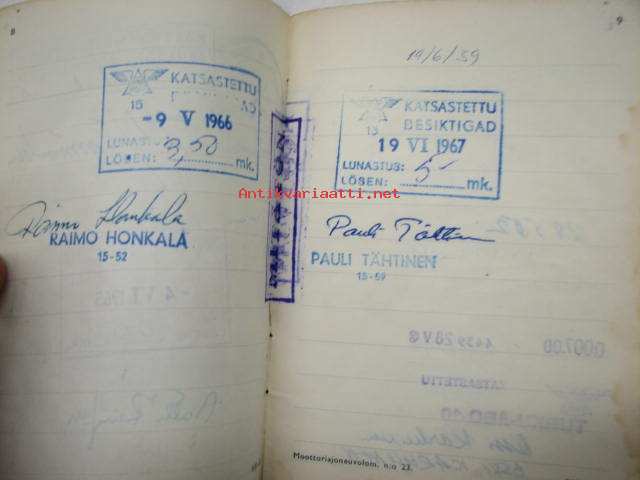 8
KATSASTETTU
15
AD
-9 V 1966
LUNASTUS:
LÖSEN: 3,50 mk.
Raimo Honkala
RAIMO HONKALA
15-52
9
19/6/59
KATSASTETTU
BESIKTIGAD
13
19 VI 1967
LUNASTUS:
LÖSEN: 5- mk.
Antikvariaatti.net
Pauli Tähtinen
PAULI TÄHTINEN
15-59
Moottoriajoneuvolom. n:o 23.